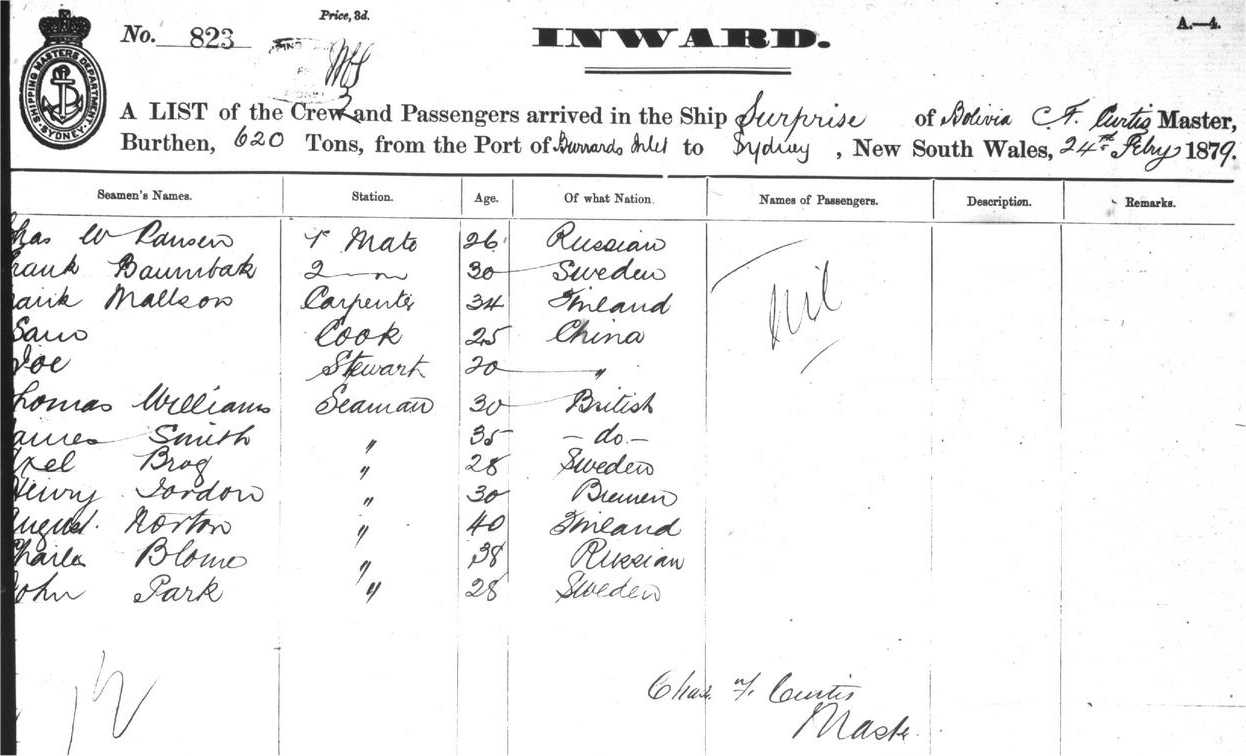 Price, 3d.
A.—4.
No. 823
INWARD.
SHIPPING MASTERS DEPARTMENT SYDNEY
A LIST of the Crew and Passengers arrived in the Ship Surprise of Bolivia C. F. Curtis Master,
Burthen, 620 Tons, from the Port of Burrards Inlet to Sydney, New South Wales, 24th Febry 1879.
Seamen's Names. Station. Age. Of what Nation. Names of Passengers. Description. Remarks.
Chas W Pansen 1 Mate 26 Russian
Frank Baumbak 2 — 30 Sweden Nil
Frank Mattson Carpenter 34 Finland
Sam Cook 25 China
Joe Stewart 20 "
Thomas Williams Seaman 30 British
James Smith " 35 — do —
Axel Brog " 28 Sweden
Henry Gordon " 30 Bremen
August Norton " 40 Finland
Charles Blome " 38 Russian
John Park " 28 Sweden
12
Chas. F. Curtis
Master